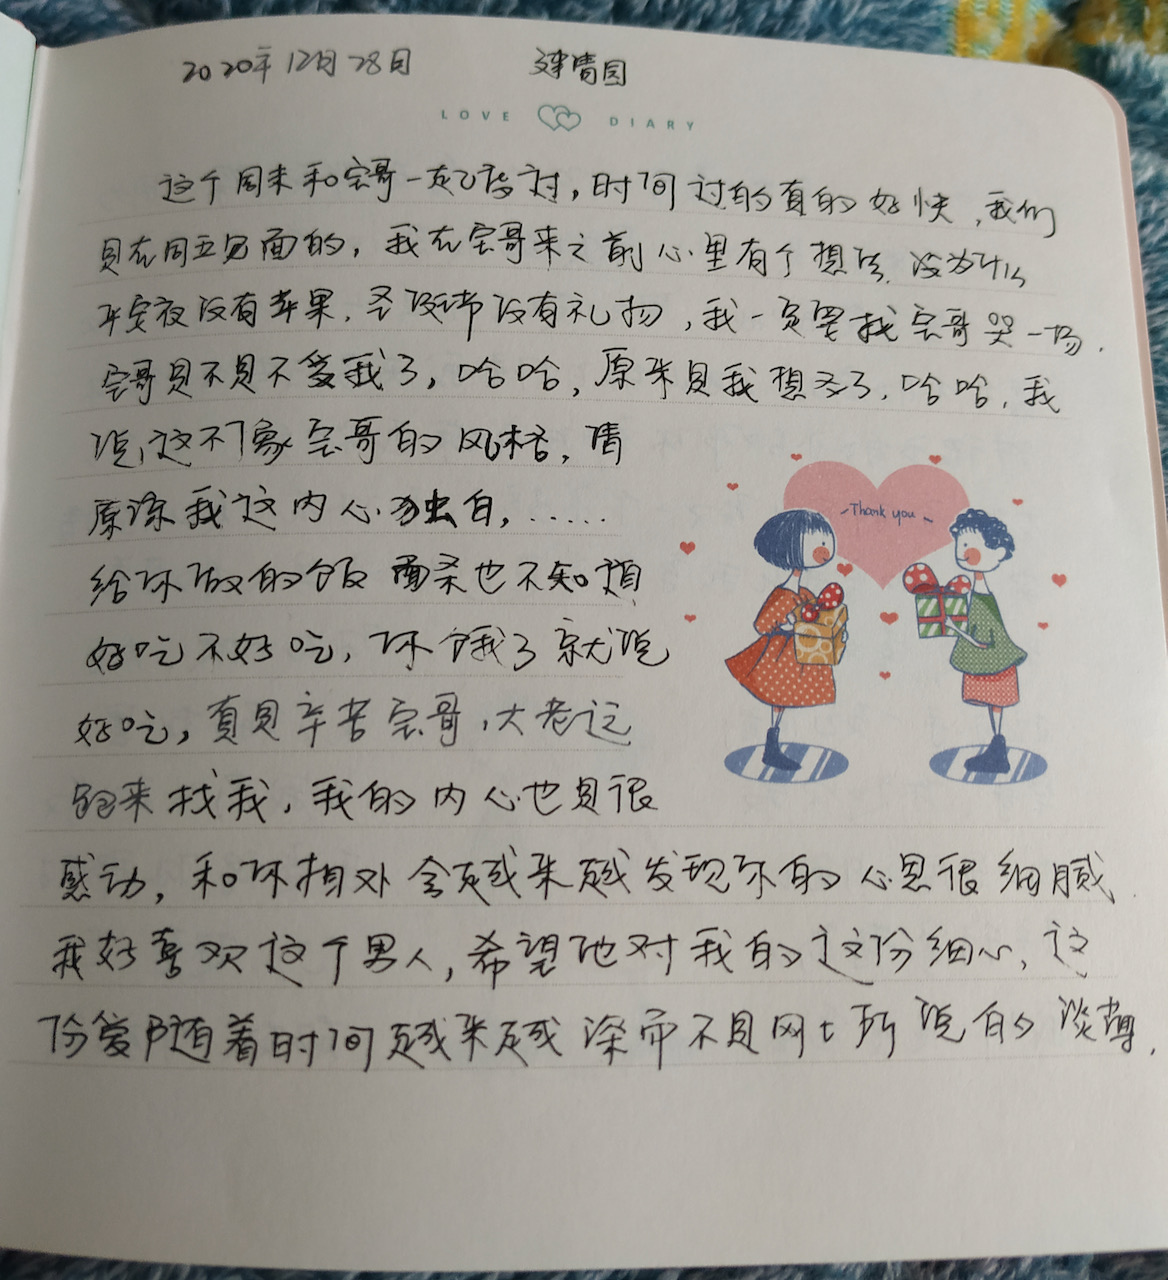 2020年12月28日 建情园
LOVE DIARY
这个周末和宝哥一起度过,时间过的真的好快,我们
是在周五见面的,我在宝哥来之前心里有个想法,没为什么
平安夜没有苹果,圣诞节没有礼物,我一定要找宝哥哭一场.
宝哥是不是不爱我了,哈哈,原来是我想多了,哈哈,我
说,这不像宝哥的风格,请
原谅我这内心独白,......
给你做的饭 也不知道
好吃不好吃,你饿了就说
好吃,真是辛苦宝哥,大老远
跑来找我,我的内心也是很
感动,和你相处会越来越发现你的心思很细腻.
我好喜欢这个男人,希望他对我的这份细心,这
份爱随着时间越来越深而不是网上所说的淡薄.
Thank you